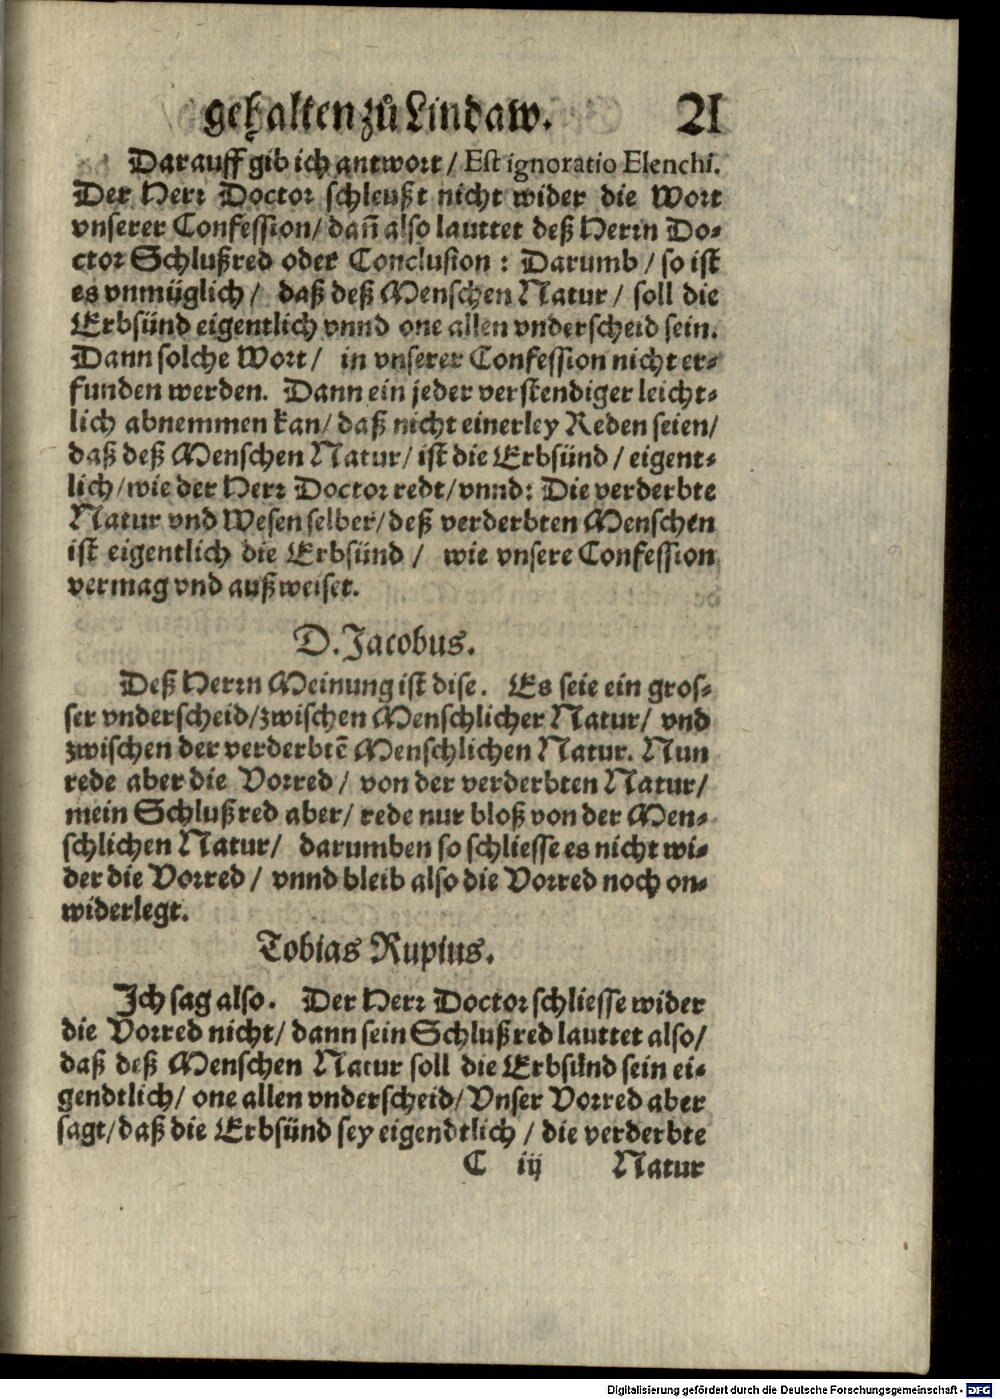 gehalten zů Lindaw. 21
Darauff gib ich antwort / Est ignoratio Elenchi.
Der Herr Doctor schleußt nicht wider die Wort
vnserer Confession / dañ also lauttet deß Herrn Do-
ctor Schlußred oder Conclusion : Darumb / so ist
es vnmüglich / daß deß Menschen Natur / soll die
Erbsünd eigentlich vnnd one allen vnderscheid sein.
Dann solche Wort / in vnserer Confession nicht er-
funden werden. Dann ein jeder verstendiger leicht-
lich abnemmen kan / daß nicht einerley Reden seien /
daß deß Menschen Natur / ist die Erbsünd / eigent-
lich / wie der Herr Doctor redt / vnnd: Die verderbte
Natur vnd Wesen selber / deß verderbten Menschen
ist eigentlich die Erbsünd / wie vnsere Confession
vermag vnd außweiset.
D. Jacobus.
Deß Herrn Meinung ist dise. Es seie ein gros-
ser vnderscheid / zwischen Menschlicher Natur / vnd
zwischen der verderbtē Menschlichen Natur. Nun
rede aber die Vorred / von der verderbten Natur /
mein Schlußred aber / rede nur bloß von der Men-
schlichen Natur / darumben so schliesse es nicht wi-
der die Vorred / vnnd bleib also die Vorred noch on-
widerlegt.
Tobias Rupius.
Ich sag also. Der Herr Doctor schliesse wider
die Vorred nicht / dann sein Schlußred lauttet also /
daß deß Menschen Natur soll die Erbsünd sein ei-
gendtlich / one allen vnderscheid / Vnser Vorred aber
sagt / daß die Erbsünd sey eigendtlich / die verderbte
C iij Natur
Digitalisierung gefördert durch die Deutsche Forschungsgemeinschaft - DFG